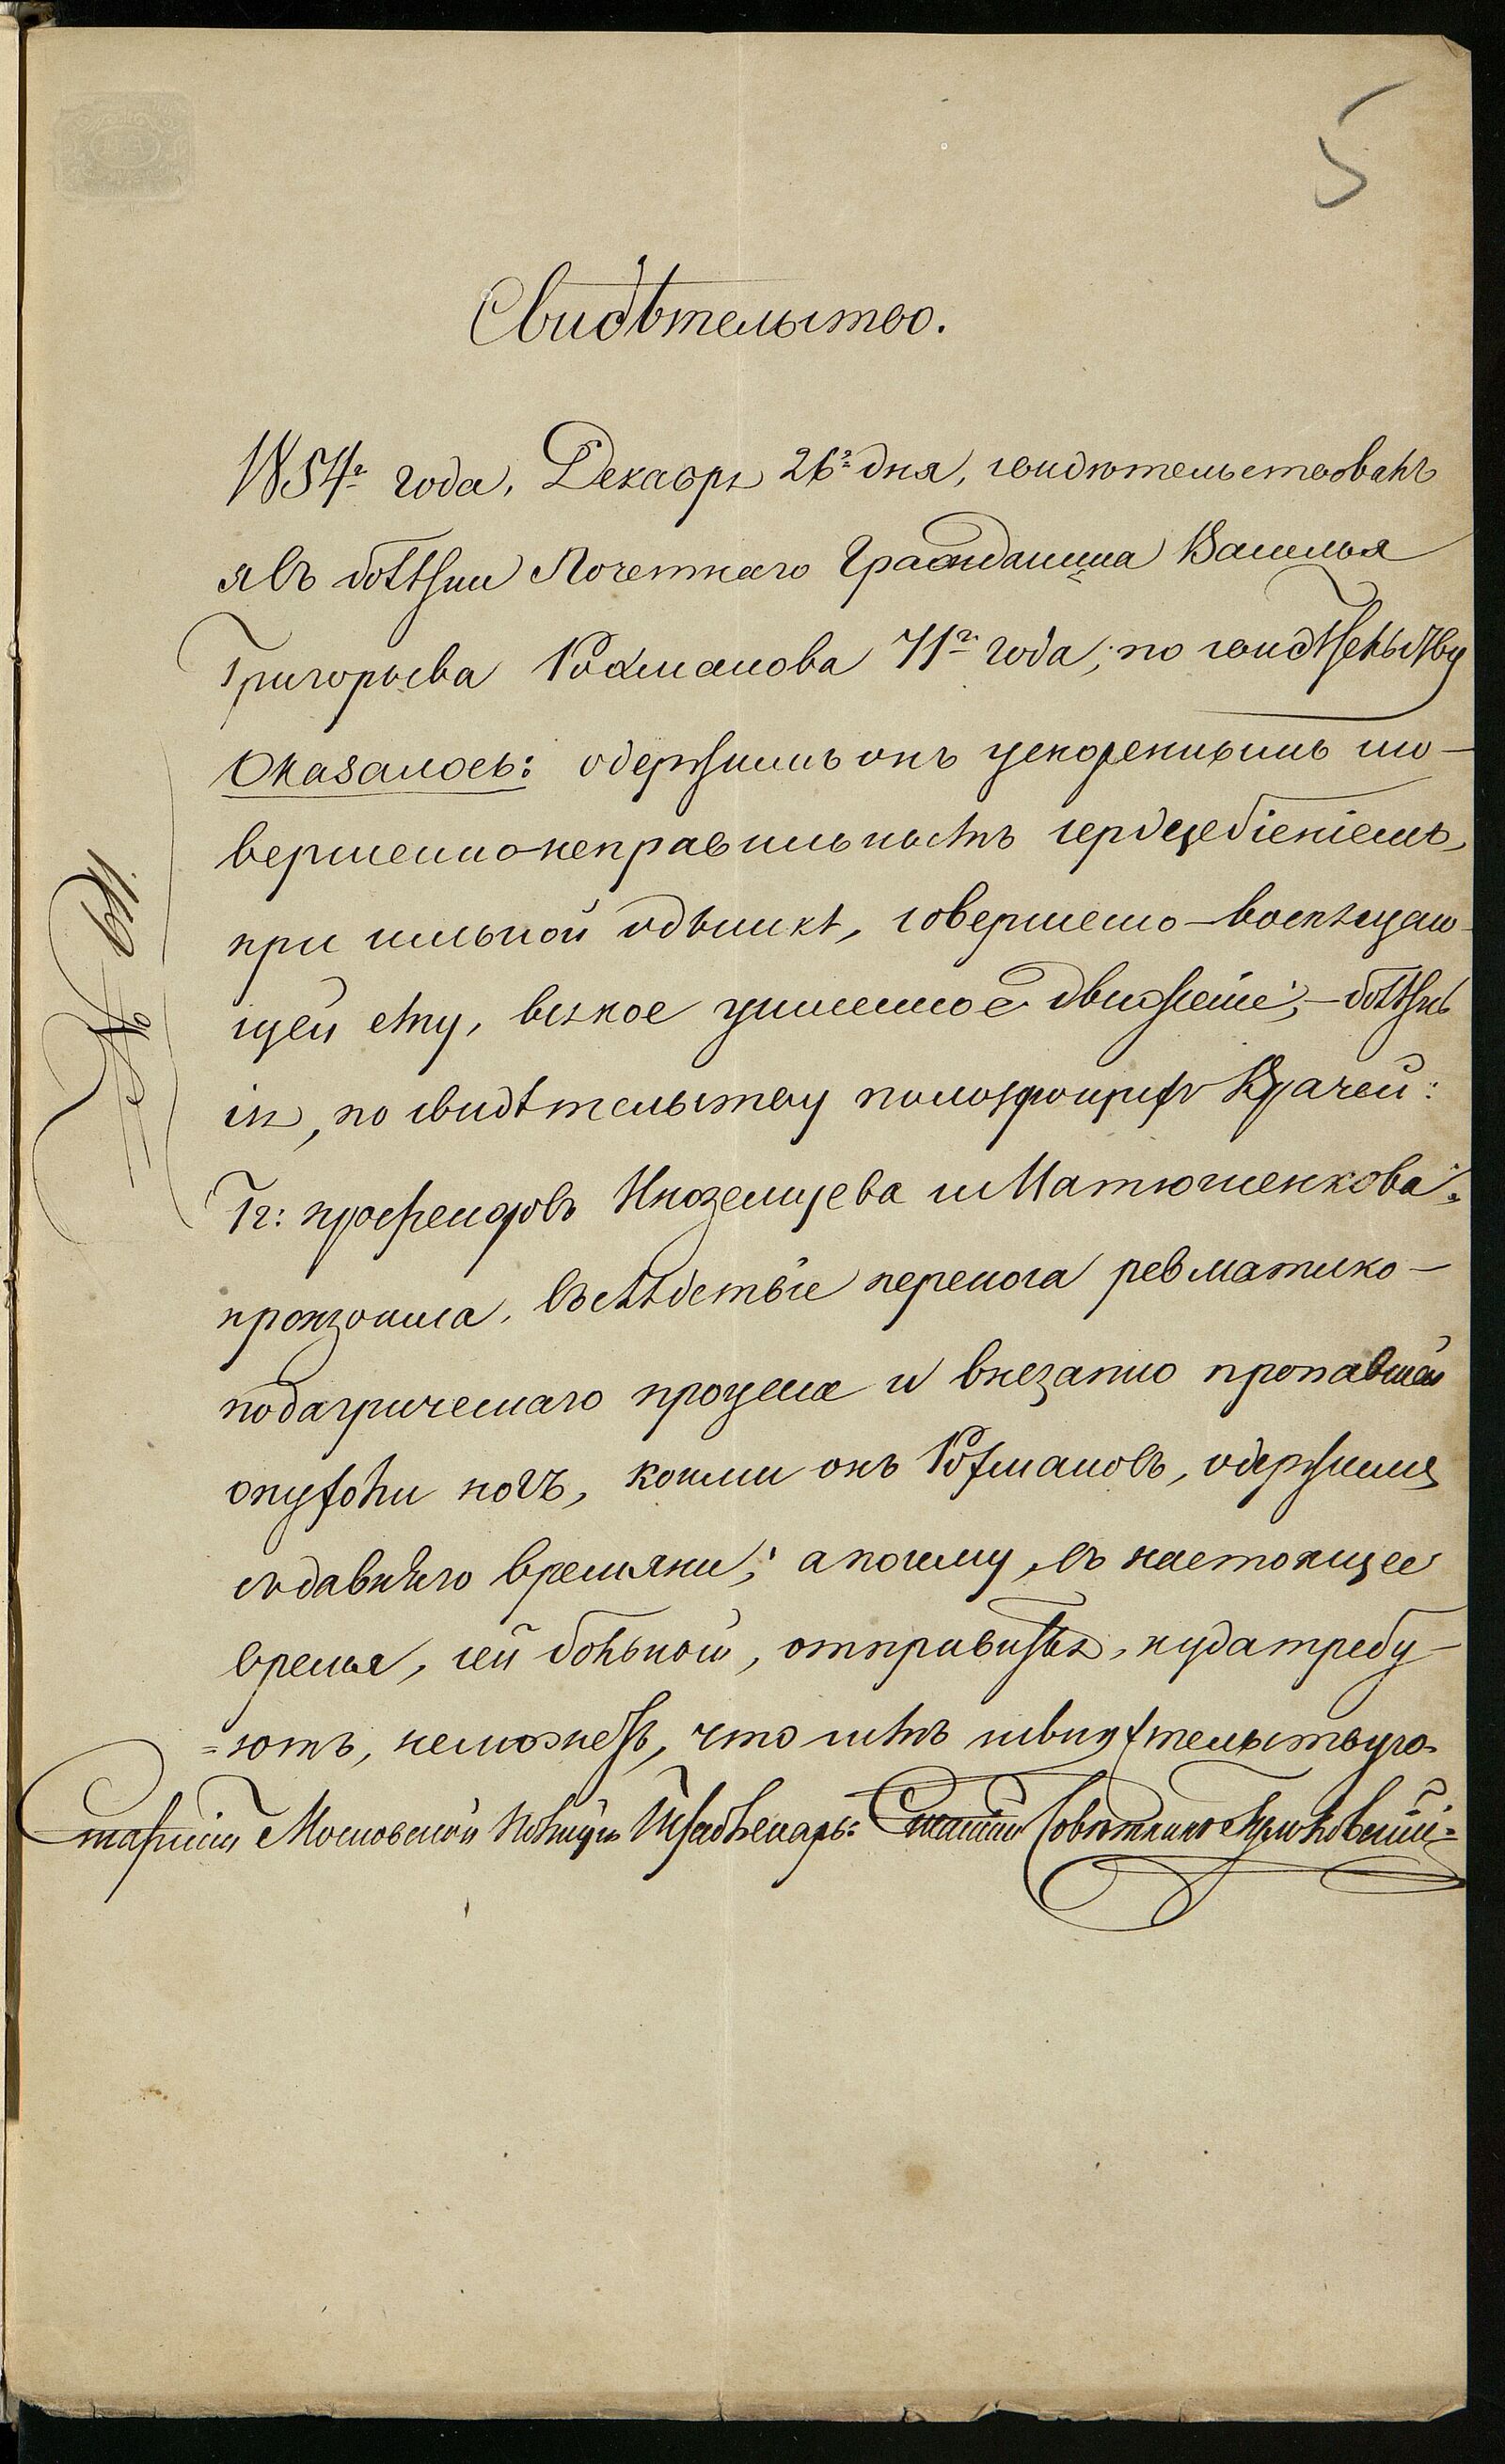 5
Свидѣтельство.
1854г года, Декабря 26г дня, свидѣтельствовалъ
я въ болѣзни Почетнаго Гражданина Василья
Григорьева Рохманова 71г года; по свидѣтельству
Оказалось: одержимъ онъ ускореннымъ со-
вершенно неправильнымъ сердцебіеніемъ,
при сильной одышкѣ, совершенно-воспрещаю-
щей ему, всякое усиленное движеніе; - болѣзнь
сія, по свидѣтельству пользующихъ Врачей:
Гг: профессоровъ Иноземцева и Матюшенкова;
произошла, въ слѣдствіе переноса ревматико-
подагрическаго процесса и внезапно пропавшей
опухоли ногъ, коими онъ Рохмановъ, одержимъ
съ давняго времяни; а посему, въ настоящее
время, сей больной, отправиться, куда требу-
=ютъ, не можетъ, что симъ и свидѣтельствую.
Старшій Московской Полиціи Штабълекарь: Статскій Совѣтникъ
№ 611.